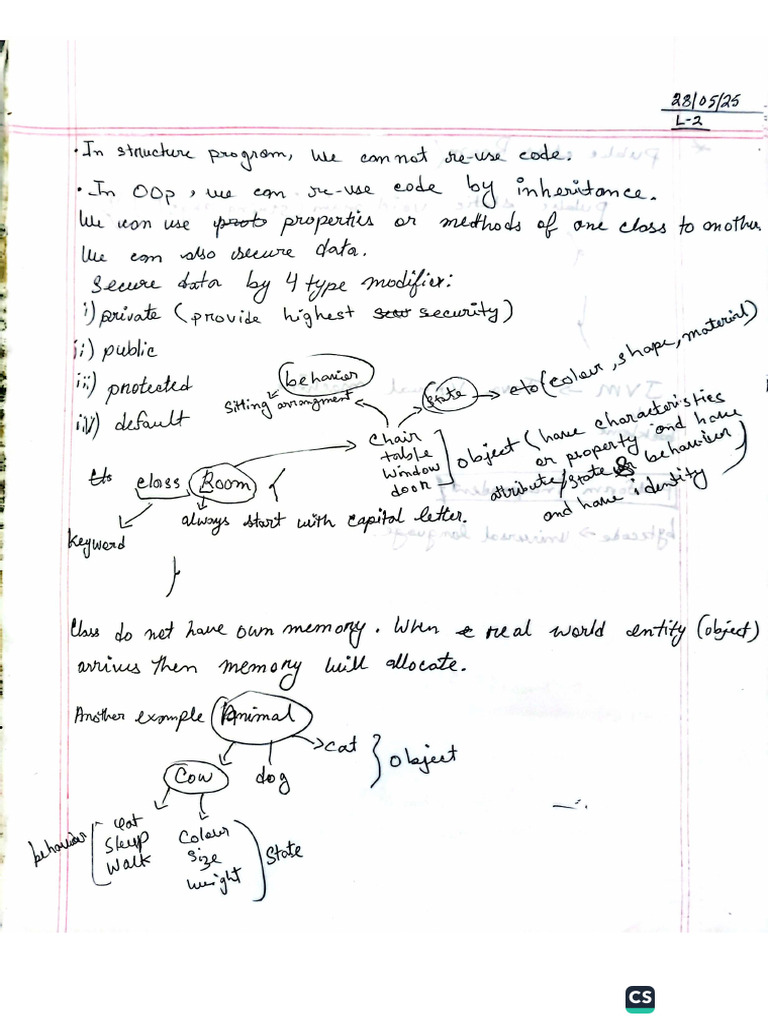 28/05/25
L-2
• In structure program, we can not re-use code.
• In OOP, we can re-use code by inheritance.
We can use properties or methods of one class to another.
We can also secure data.
Secure data by 4 type modifier:
i) private (provide highest security)
ii) public
iii) protected
iv) default
behavior
sitting arrangment
State → etc (colour, shape, material)
chair
table
window
door
object (have characteristics
or property and have
attribute/State & behaviour
and have identity)
class Room {
always start with capital letter.
keyword
}
Class do not have own memory. When real world entity (object)
arrives then memory will allocate.
Another example Animal
cow
dog
cat
} object
behaviour
eat
sleep
walk
colour
size
weight
State
CS